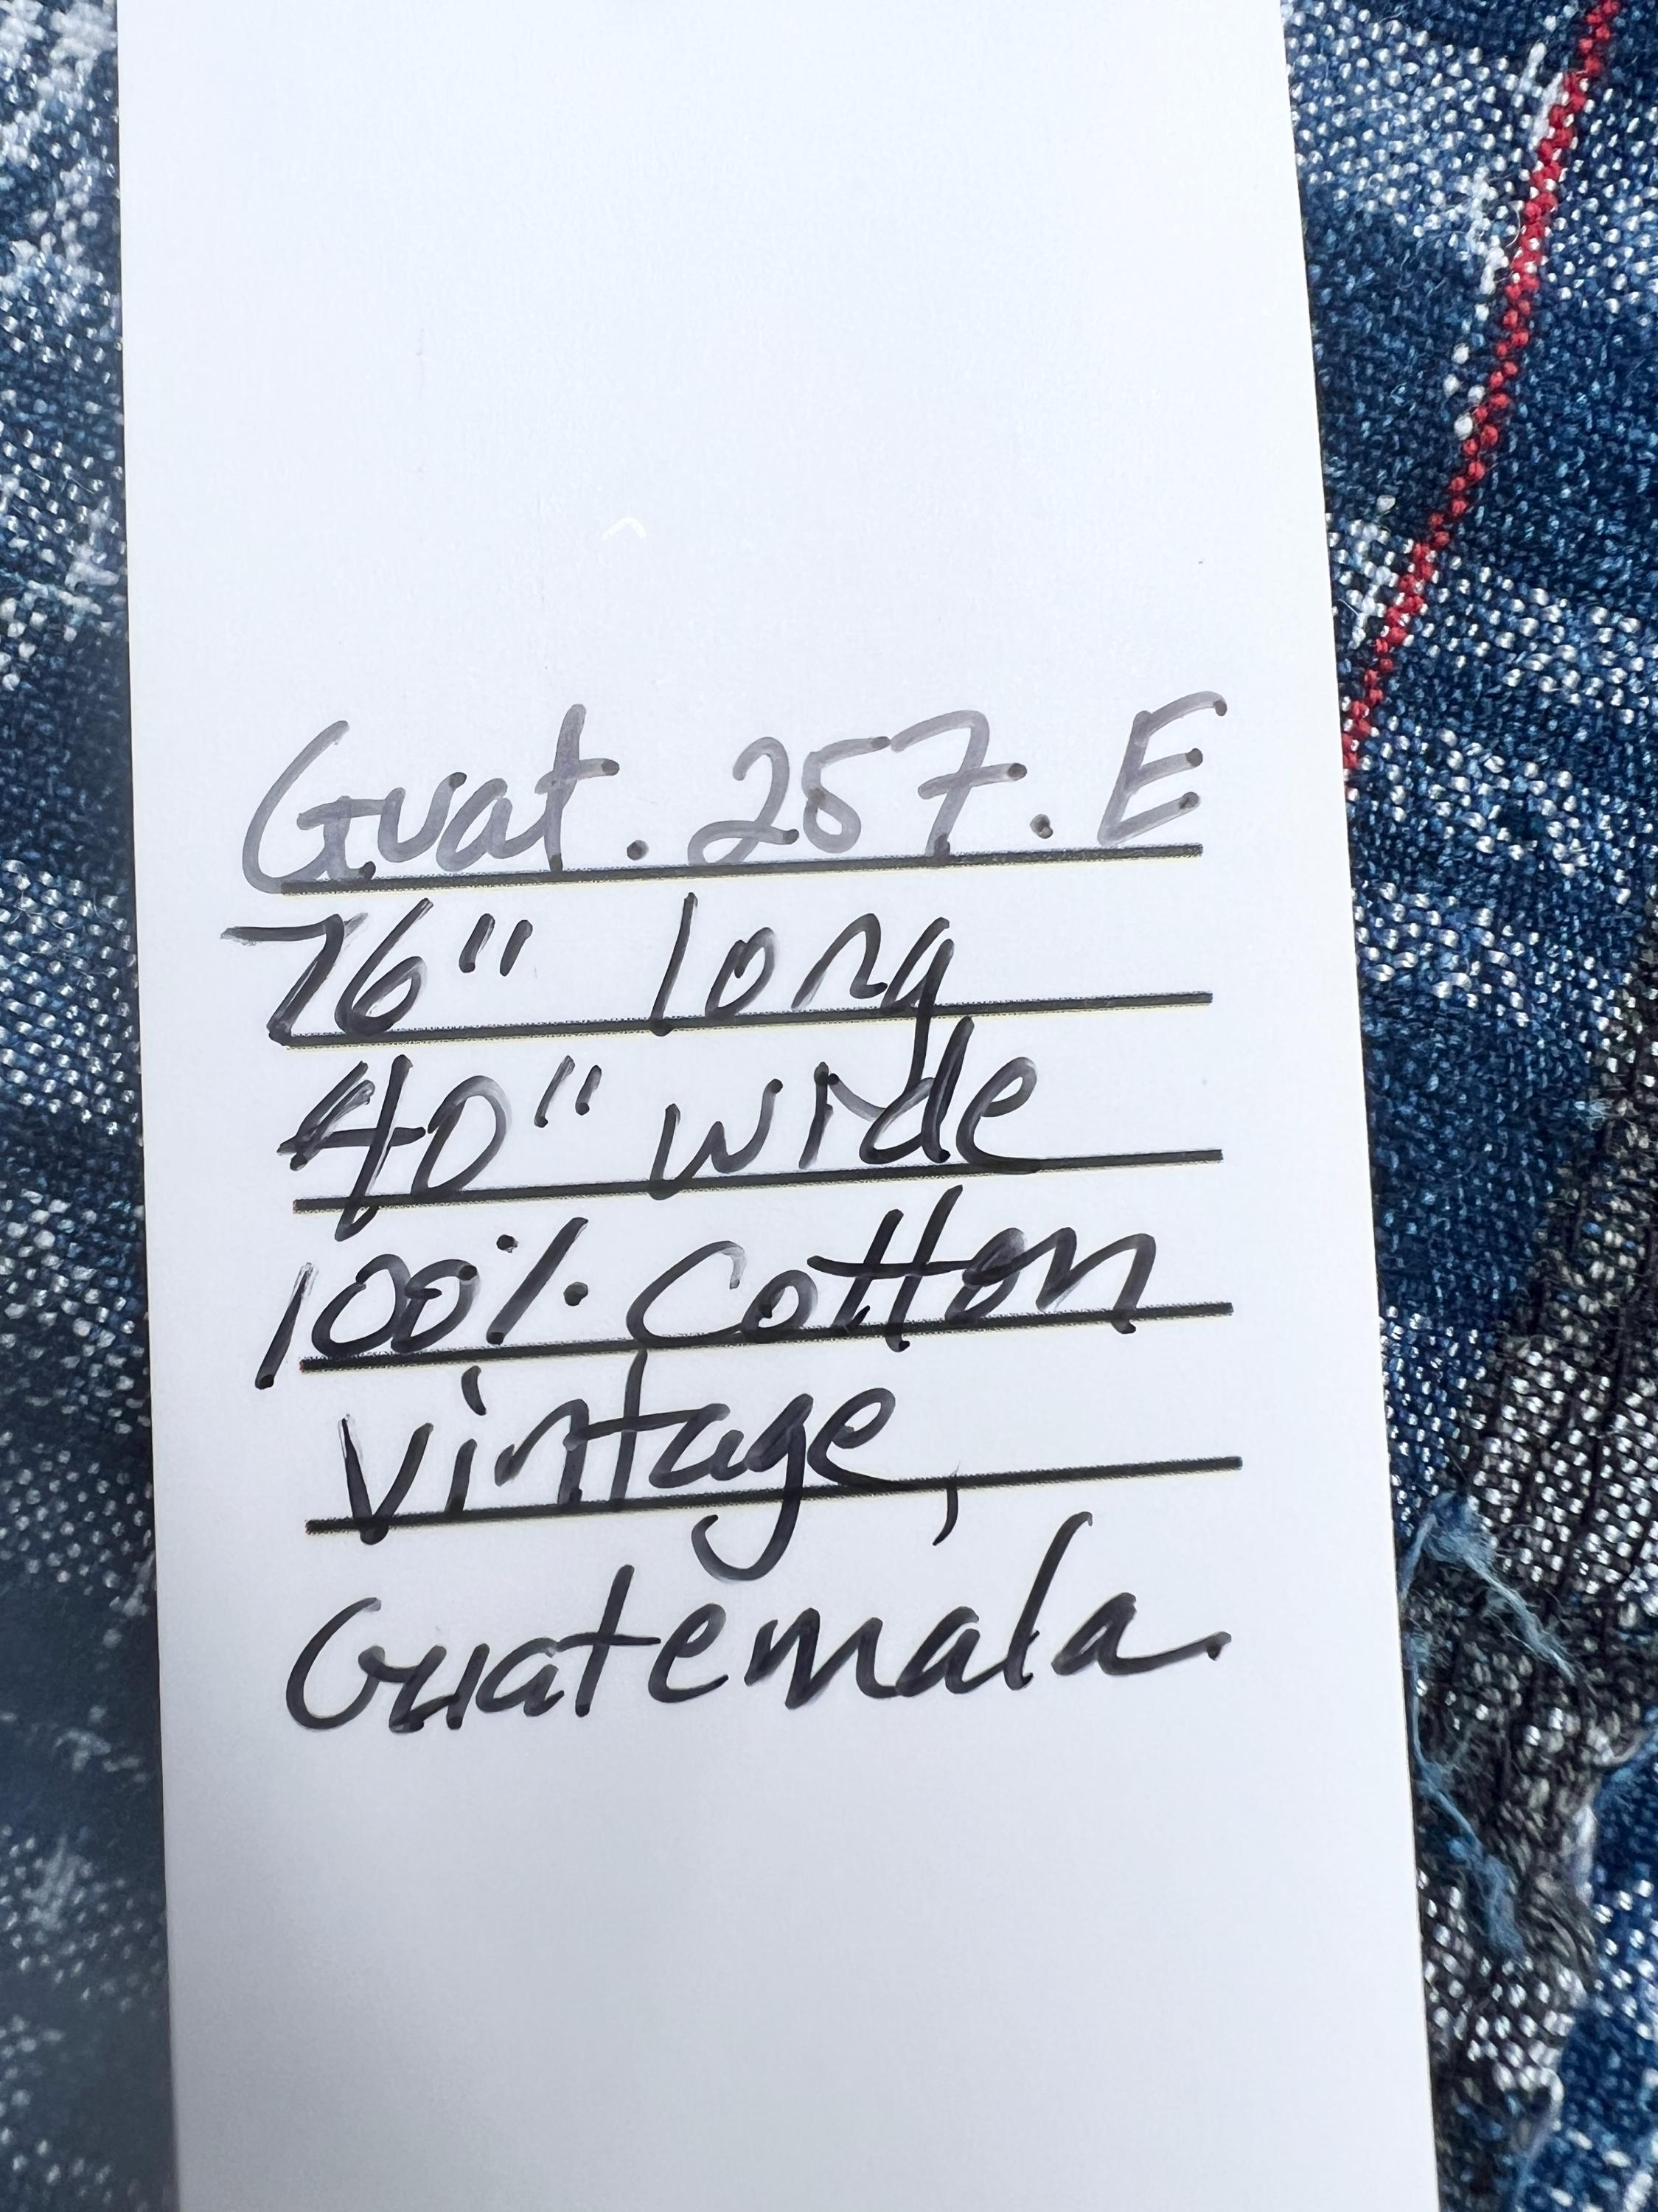 Guat. 257. E
76" long
40" wide
100% Cotton
Vintage,
Guatemala.